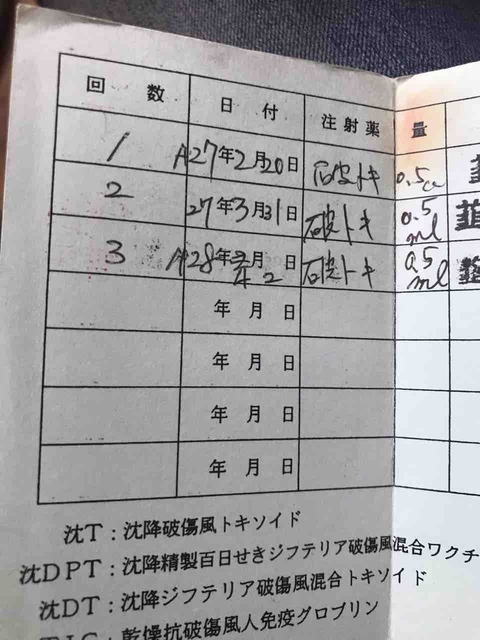 回 数 日 付 注射薬 量
1 H27年2月20日 破トキ 0.5cc
2 27年3月31日 破トキ 0.5ml
3 H28年 月 日 破トキ 0.5ml
年 月 日
年 月 日
年 月 日
年 月 日
沈T：沈降破傷風トキソイド
沈DPT：沈降精製百日せきジフテリア破傷風混合ワクチ
沈DT：沈降ジフテリア破傷風混合トキソイド
乾燥抗破傷風人免疫グロブリン